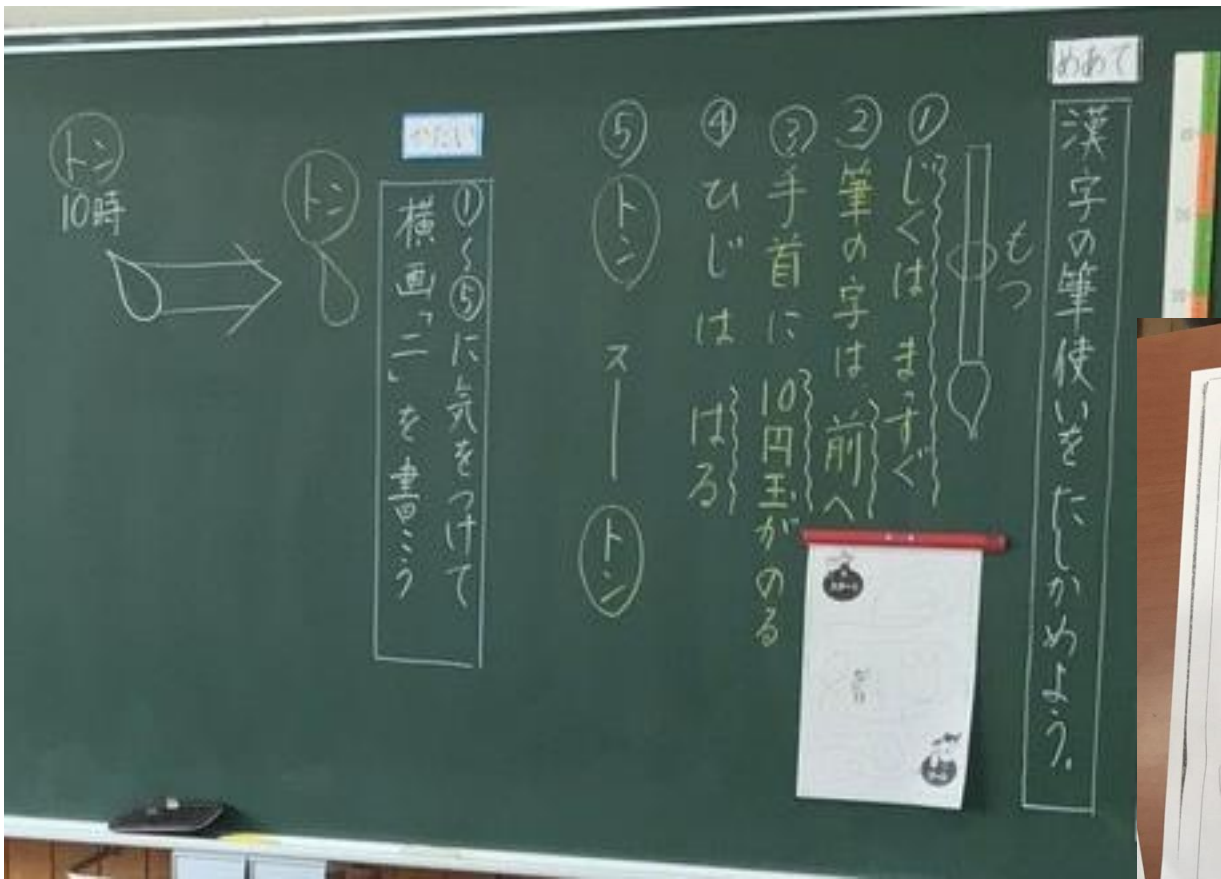 めあて
漢字の筆使いをたしかめよう。
もつ
①じくは まっすぐ
②筆の字は、前へ
③手首に 10円玉がのる
④ひじは はる
⑤トン スー トン
かだい
①〜⑤に気をつけて
横画「二」を書こう
トン
トン
10時